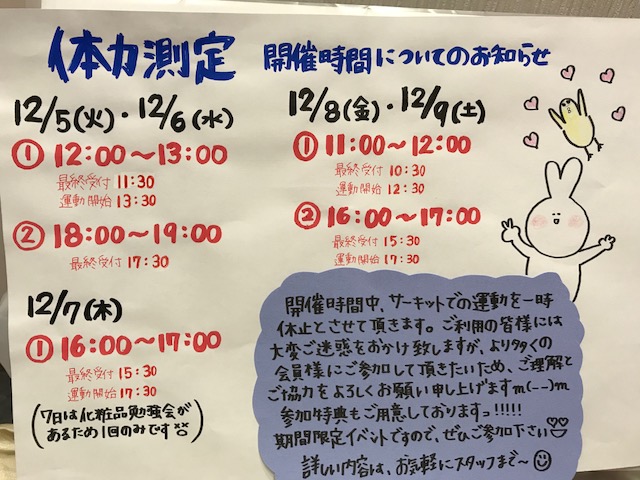 体力測定 開催時間についてのお知らせ
12/5(火)・12/6(水)
① 12:00～13:00
最終受付 11:30
運動開始 13:30
② 18:00～19:00
最終受付 17:30
12/7(木)
① 16:00～17:00
最終受付 15:30
運動開始 17:30
(7日は化粧品勉強会が
あるため1回のみです)
12/8(金)・12/9(土)
① 11:00～12:00
最終受付 10:30
運動開始 12:30
② 16:00～17:00
最終受付 15:30
運動開始 17:30
開催時間中、サーキットでの運動を一時
休止とさせて頂きます。ご利用の皆様には
大変ご迷惑をおかけ致しますが、より多くの
会員様にご参加して頂きたいため、ご理解と
ご協力をよろしくお願い申し上げますm(--)m
参加特典もご用意しておりますっ!!!!!
期間限定イベントですので、ぜひご参加下さい♡♡
詳しい内容は、お気軽にスタッフまで～☺